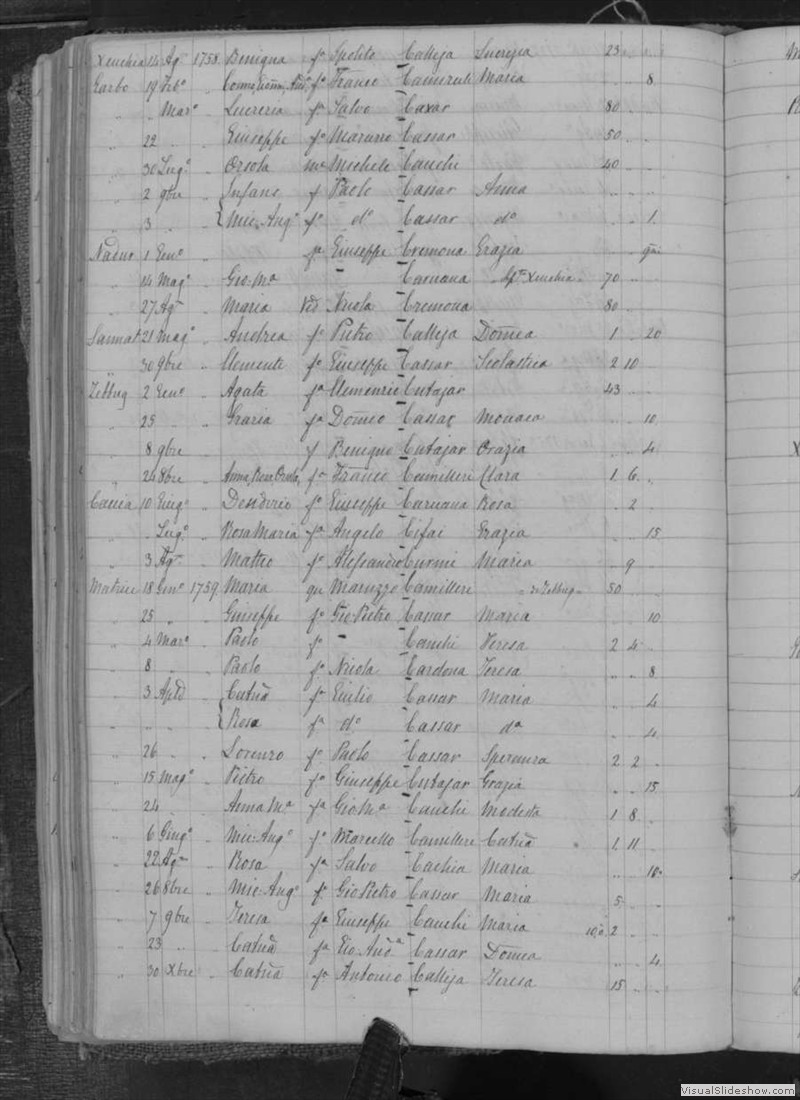 Xeuchia 14 Agto 1758 Benigna fa Ipolito Calleja Lucrezia 25 " "
Garbo 19 Franco Camizuli Maria " " 8
" " Maro " Lucrezia fa Salvo Caxar 80 "
" 22 " " Giuseppe fo Cassar 50 "
" 30 Lugo " Orsola Michele Cauchi 40 "
" 2 9bre " Infans f Paolo Cassar Anna " " "
" 3 " " Mic: Ango fo do Cassar do " " 1
Nadur 1 Geno " fa Giuseppe Cremona Grazia " "
" 14 Mago " Gio: Ma " Caruana Xeuchia 70 "
" 27 Agto " Maria Nicola Cremona 80 "
Sannat 21 Mago " Andrea fo Pietro Calleja Domca 1 " 20
" 30 9bre " Clemente fo Giuseppe Cassar Scolastica 2 10
Zebbug 2 Geno " Agata fa Cutajar 43
" 25 " Grazia fa Domco Cassar Monaca " " 10
" 8 9bre " f Benigno Cutajar Orazia " " 4
" 24 8bre " Franco Camilleri Clara 1 6 "
Caccia 10 Giugo " Desiderio fo Giuseppe Caruana Rosa " 2
" " Lugo " Rosa Maria fa Angelo Cifai Grazia " " 15
" 3 Agto " Matteo fo Alessandro Curmi Maria " 9
Matrice 18 Geno 1759 Maria Maruzzo Camilleri " Zebbug " 50 "
" 25 " " Giuseppe fo Gio: Pietro Cassar Maria " " 10
" 4 Maro " Paolo fo - Cauchi Teresa 2 4 "
" 8 " " Paolo fo Nicola Cardona Teresa " " 8
" 3 Aple " Catna fa Giulio Cassar Maria " " 4
" " " Rosa fa do Cassar da " " 4
" 26 " " Lorenzo fo Paolo Cassar Speranza 2 2 "
" 15 Mago " Pietro fo Giuseppe Cutajar Grazia " " 15
" 24 " Anna Ma fa Gio Ma Cauchi Modesta 1 8 "
" 6 Giugo " Mic: Ango fo Marcello Camilleri Catna 1 11 "
" 22 Agto " Rosa fa Salvo Cachia Maria " " 10
" 26 8bre " Mic: Ango fo Gio Pietro Cassar Maria 5 " "
" 7 9bre " Teresa fa Giuseppe Cauchi Maria 2 " "
" 23 " " Catna fa Gio: Cassar Domca " " 4
" 30 Xbre " Catna fa Antonio Calleja Teresa 15 " "
VisualSlideshow.com